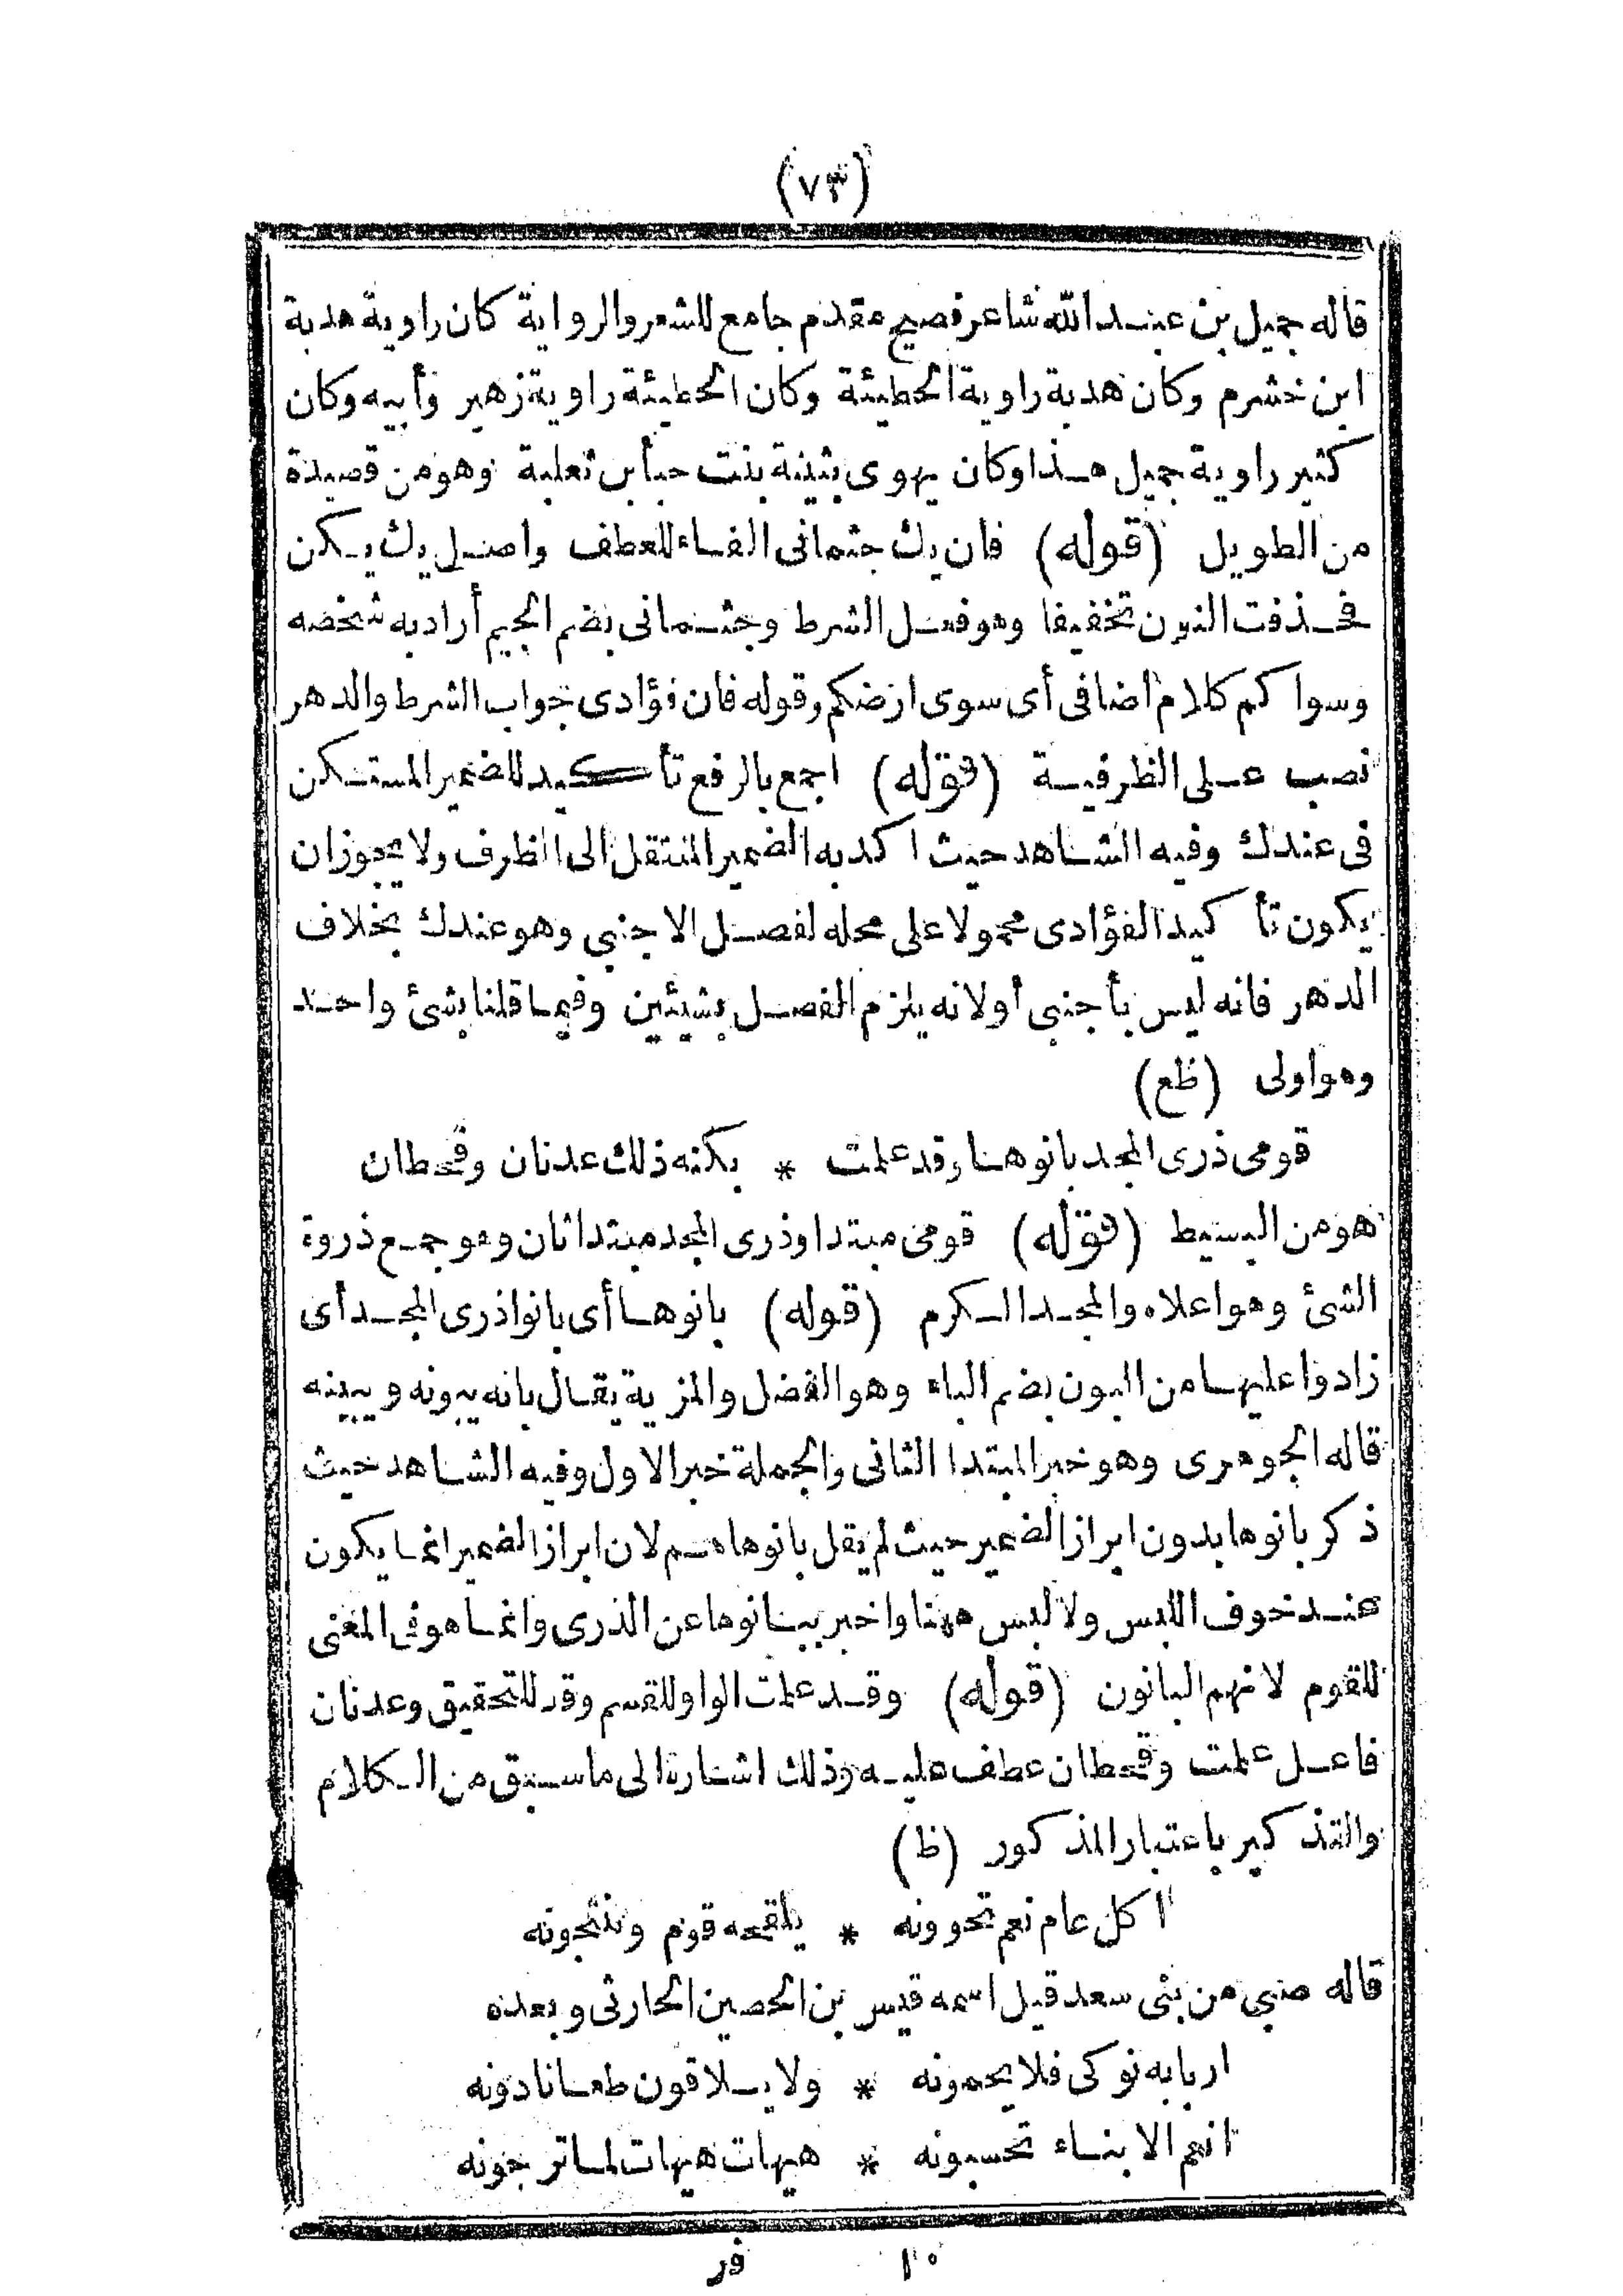 (٧٣)
قاله جميل بن عبد الله شاعر فصيح مقدم جامع للشعر والرواية كان راوية هدبة
ابن خشرم وكان هدبة راوية الحطيئة وكان الحطيئة راوية زهير وأبيه وكان
كثير راوية جميل هذا وكان يهوى بثينة بنت حبأ بن ثعلبة وهو من قصيدة
من الطويل (قوله) فان يك جثمانى الفاء للعطف واصل يك يكن
فحذفت النون تخفيفا وهو فعل الشرط وجثمانى بضم الجيم أراد به شخصه
وسواكم كلام اضافى أى سوى ارضكم وقوله فان فؤادى جواب الشرط والدهر
نصب على الظرفية (قوله) اجمع بالرفع تأكيد للضمير المستكن
فى عندك وفيه الشاهد حيث اكد به الضمير المنتقل الى الظرف ولا يجوز ان
يكون تأكيدا لفؤادى محمولا على محله لفصل الاجنبى وهو عندك بخلاف
الدهر فانه ليس بأجنبى أولانه يلزم الفصل بشيئين وفيما قلنا بشئ واحد
وهو اولى (ظع)
قومى ذرى المجد بانوها وقد علمت * بكنه ذلك عدنان وقحطان
هو من البسيط (قوله) قومى مبتدا وذرى المجد مبتدا ثان وهو جمع ذروة
الشئ وهو اعلاه والمجد الكرم (قوله) بانوها أى بانوا ذرى المجد أى
زادوا عليها من البون بضم الباء وهو الفضل والمزية يقال بانه يبونه ويبينه
قاله الجوهرى وهو خبر المبتدا الثانى والجملة خبر الاول وفيه الشاهد حيث
ذكر بانوها بدون ابراز الضمير حيث لم يقل بانوها هم لان ابراز الضمير انما يكون
عند خوف اللبس ولا لبس ههنا واخبر ببانوها عن الذرى وانما هو فى المعنى
للقوم لانهم البانون (قوله) وقد علمت الواو للقسم وقد للتحقيق وعدنان
فاعل علمت وقحطان عطف عليه وذلك اشارة الى ما سبق من الكلام
والتذكير باعتبار المذكور (ظ)
اكل عام نعم تحوونه * يلقحه قوم وتنتجونه
قاله صبى من بنى سعد قيل اسمه قيس بن الحصين الحارثى وبعده
اربابه نوكى فلا يحمونه * ولا يلاقون طعانا دونه
انعم الابناء تحسبونه * هيهات هيهات لما ترجونه
١٠ فر